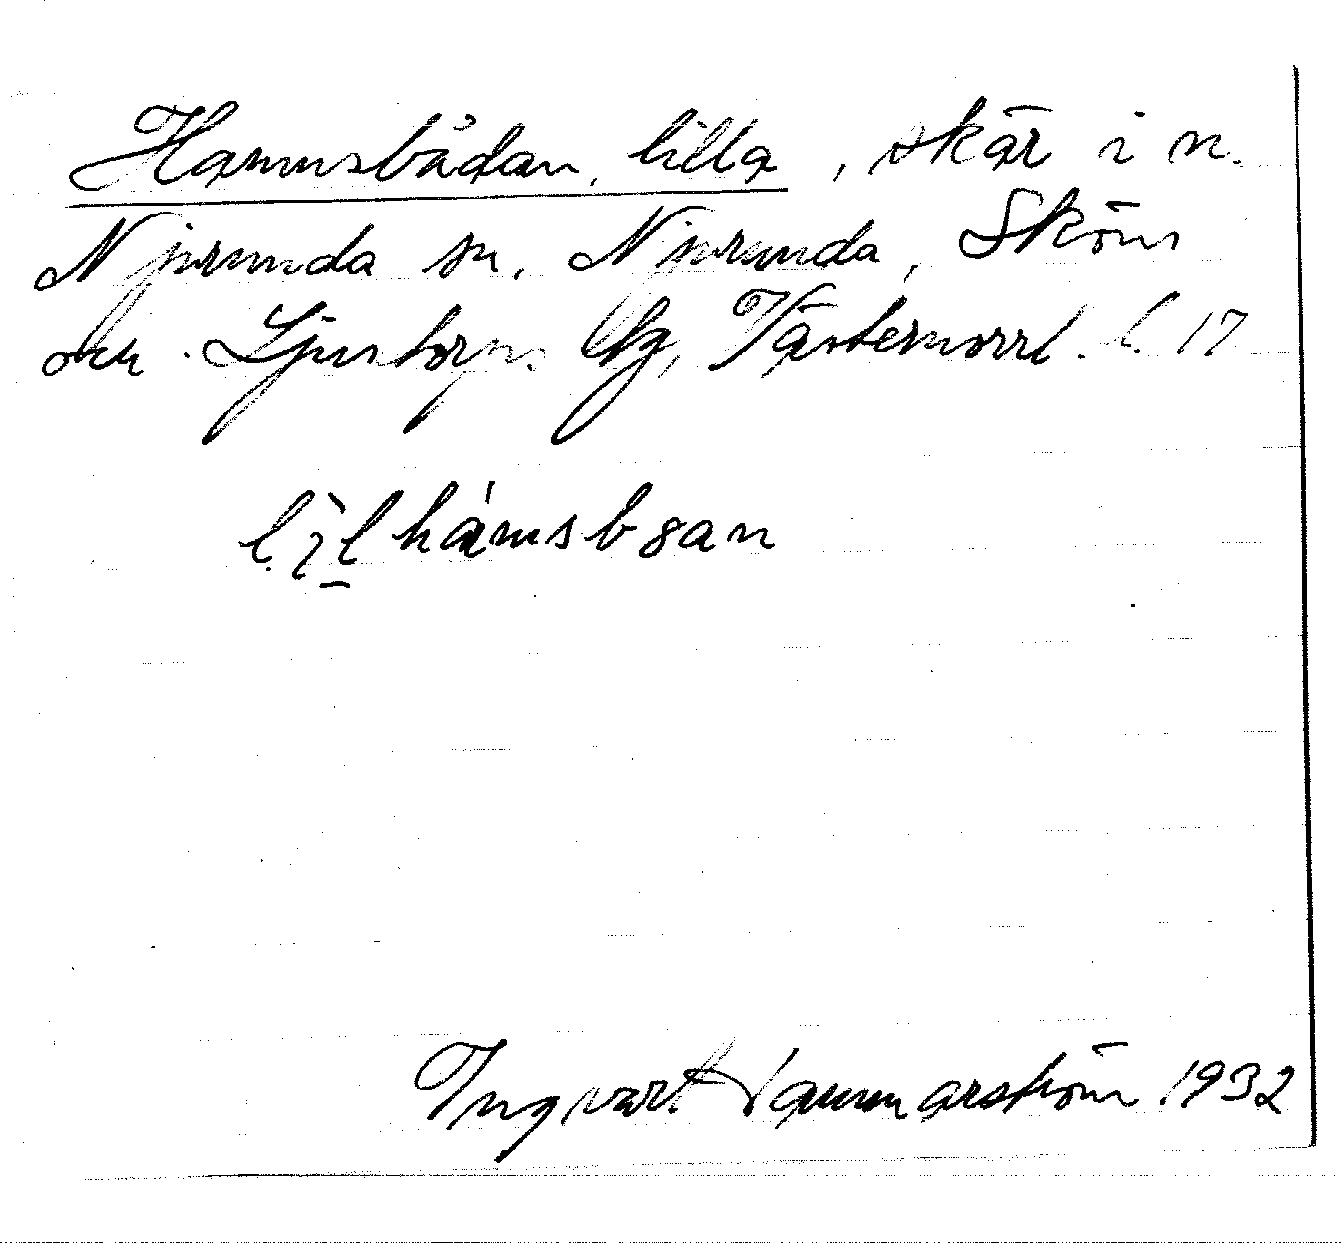 Hamnsbådan, lilla, skär i n.
Njurunda sn. Njurunda, Sköns
och Ljustorps tg, Västernorrl. l. 17
hámsbɜan
Ingvart Hammarström 1932